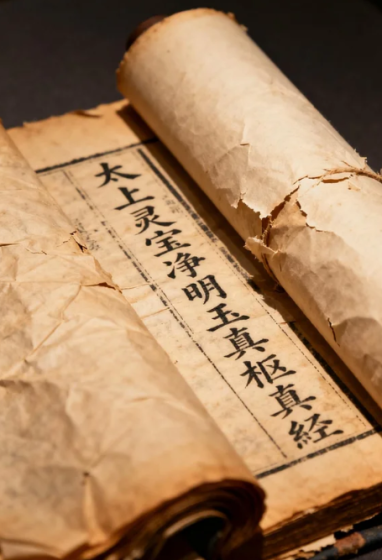 太上灵宝净明玉真枢真経